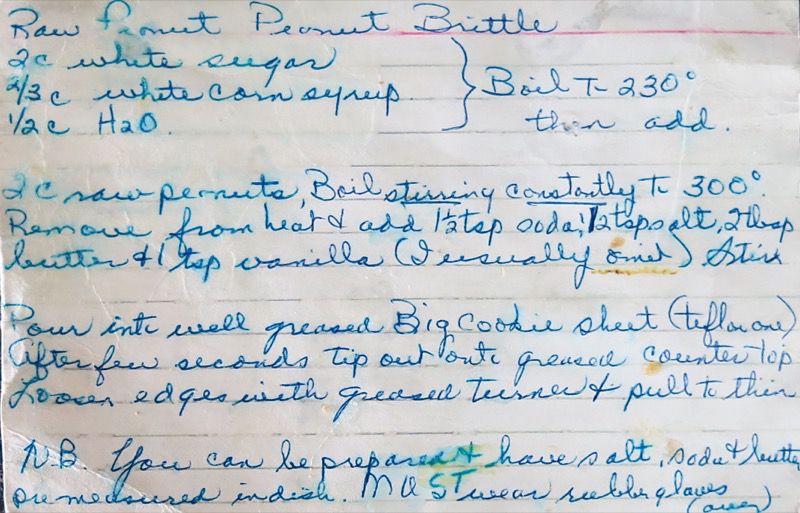 Raw Peanut Peanut Brittle
2c white sugar
2/3c white corn syrup
1/2c H2O.
} Boil To 230°
then add.
2c raw peanuts, Boil stirring constantly To 300°.
Remove from heat & add 1½tsp soda, ½tsp salt, 2tbsp
butter & 1 tsp vanilla (I usually omit) Stir
Pour into well greased Big Cookie sheet (teflon one)
After few seconds tip out onto greased counter top
Loosen edges with greased turner & pull to thin
N.B. You can be prepared & have salt, soda & butter
premeasured in dish. MUST wear rubber gloves
(over)